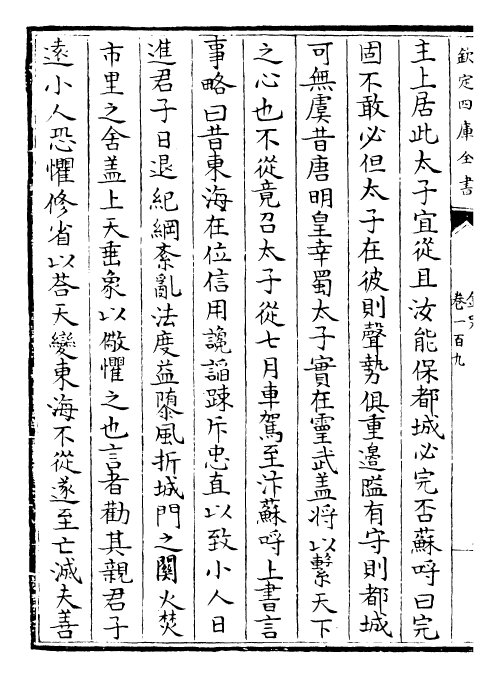 欽定四庫全書
卷一百九
主上居此太子宜從且汝能保都城必完否蘇哷曰完
固不敢必但太子在彼則聲勢俱重邉隘有守則都城
可無虞昔唐明皇幸蜀太子實在靈武盖将以繫天下
之心也不從竟召太子從七月車駕至汴蘇哷上書言
事略曰昔東海在位信用讒謟踈斥忠直以致小人日
進君子日退紀綱紊亂法度益隳風折城門之關火焚
市里之舍盖上天垂象以儆懼之也言者勸其親君子
逺小人恐懼修省以荅天變東海不從遂至亡滅夫善